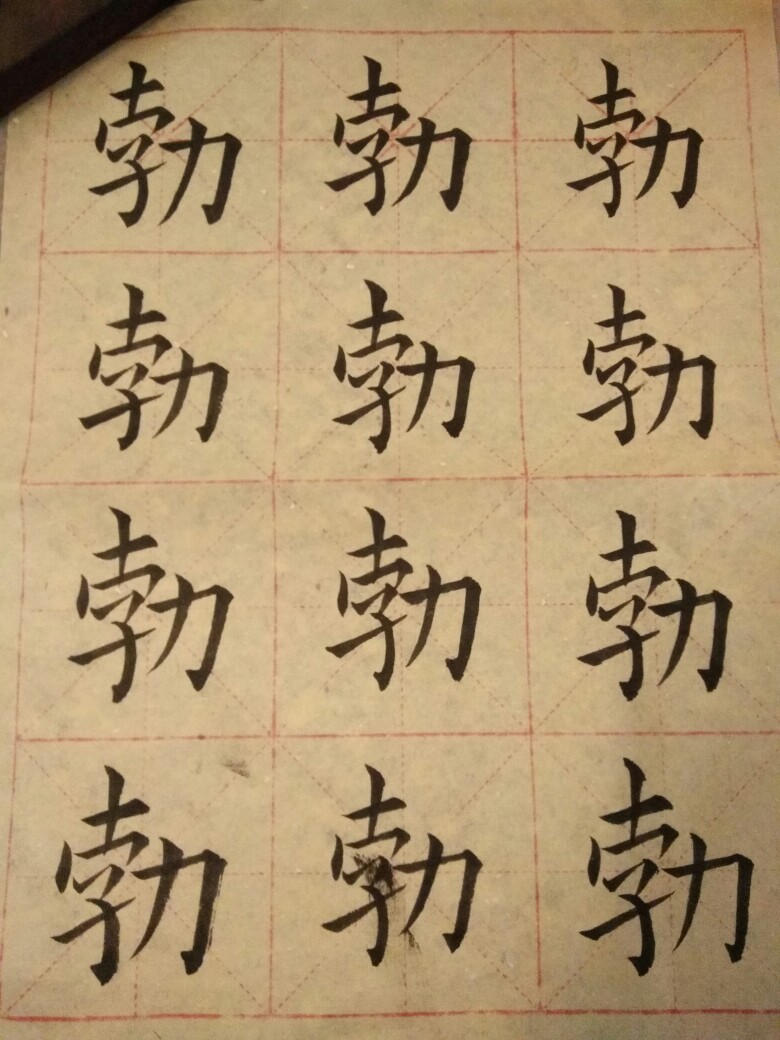 勃勃勃
勃勃勃
勃勃勃
勃勃勃